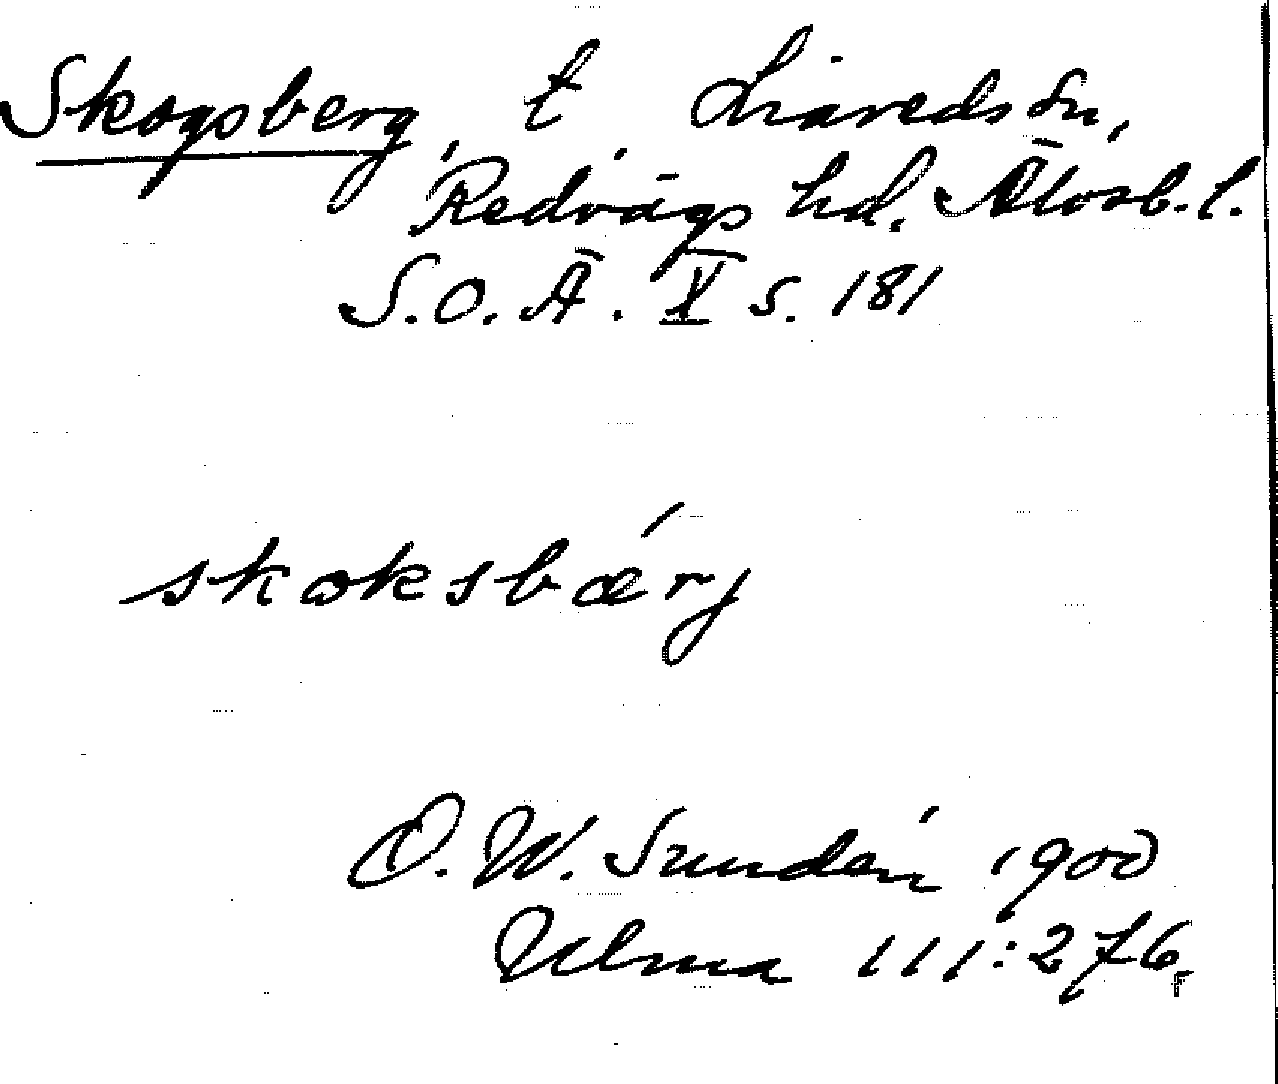 Skogsberg, t Liareds sn,
Redvägs hd. Älvsb. l.
S.O.Ä. X s. 181
skoksbærj
O. W. Sundén 1900
Ulma 111:276.